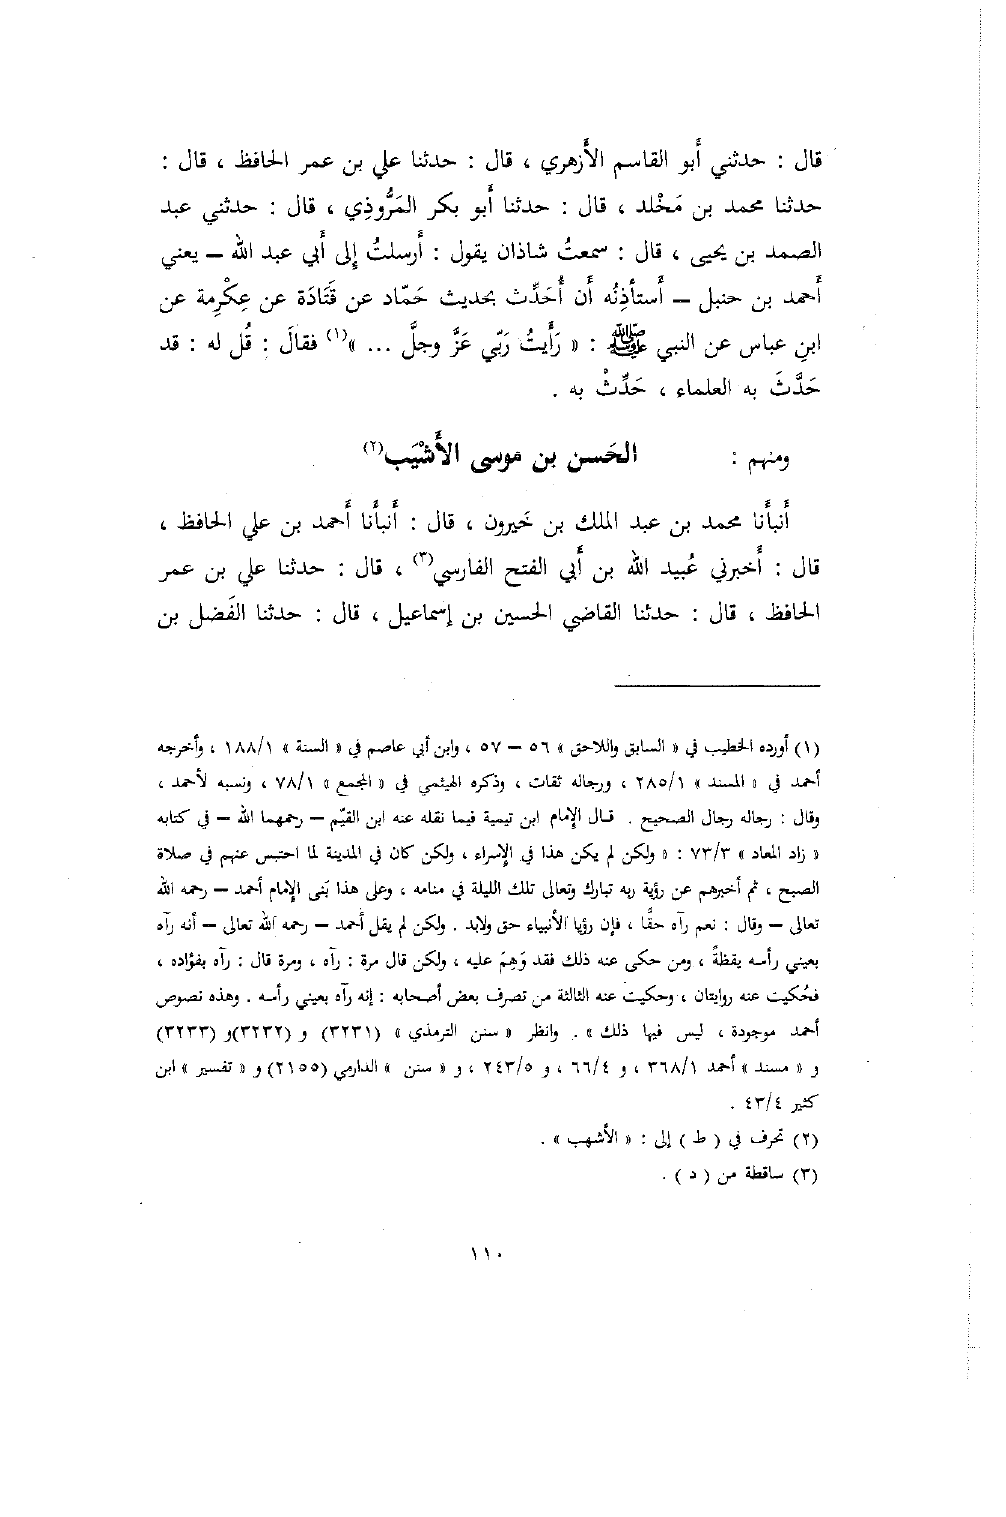 قال : حدثني أَبو القاسم الأَزهري ، قال : حدثنا علي بن عمر الحافظ ، قال :
حدثنا محمد بن مَخْلد ، قال : حدثنا أَبو بكر المَرُّوذِي ، قال : حدثني عبد
الصمد بن يحيى ، قال : سمعتُ شاذان يقول : أَرسلتُ إِلى أَبي عبد الله – يعني
أَحمد بن حنبل – أَستأذِنُه أَن أُحَدِّث بحديث حَمّاد عن قَتَادَة عن عِكْرِمة عن
ابنِ عباس عن النبي ﷺ : « رَأَيتُ رَبّي عَزَّ وجلَّ ... »(١) فقالَ : قُل له : قد
حَدَّثَ به العلماء ، حَدِّثْ به .
ومنهم : الحَسن بن موسى الأَشْيَب(٢)
أَنبأَنا محمد بن عبد الملك بن خَيرون ، قال : أَنبأَنا أَحمد بن علي الحافظ ،
قال : أَخبرني عُبيد الله بن أَبي الفتح الفارسي(٣) ، قال : حدثنا علي بن عمر
الحافظ ، قال : حدثنا القاضي الحسين بن إسماعيل ، قال : حدثنا الفَضل بن
(١) أورده الخطيب في « السابق واللاحق » ٥٦ – ٥٧ ، وابن أبي عاصم في « السنة » ١٨٨/١ ، وأخرجه
أحمد في « المسند » ٢٨٥/١ ، ورجاله ثقات ، وذكره الهيثمي في « المجمع » ٧٨/١ ، ونسبه لأحمد ،
وقال : رجاله رجال الصحيح . قال الإمام ابن تيمية فيما نقله عنه ابن القيّم – رحمهما الله – في كتابه
« زاد المعاد » ٧٣/٣ : « ولكن لم يكن هذا في الإسراء ، ولكن كان في المدينة لما احتبس عنهم في صلاة
الصبح ، ثم أخبرهم عن رؤية ربه تبارك وتعالى تلك الليلة في منامه ، وعلى هذا بَنى الإمام أحمد – رحمه الله
تعالى – وقال : نعم رآه حقًّا ، فإن رؤيا الأنبياء حق ولابد . ولكن لم يقل أحمد – رحمه الله تعالى – أنه رآه
بعيني رأسه يقظةً ، ومن حكى عنه ذلك فقد وَهِمَ عليه ، ولكن قال مرة : رآه ، ومرة قال : رآه بفؤاده ،
فحُكيت عنه روايتان ، وحكيت عنه الثالثة من تصرف بعض أصحابه : إنه رآه بعيني رأسه . وهذه نصوص
أحمد موجودة ، ليس فيها ذلك » . وانظر « سنن الترمذي » (٣٢٣١) و (٣٢٣٢)و (٣٢٣٣)
و « مسند » أحمد ٣٦٨/١ ، و ٦٦/٤ ، و ٢٤٣/٥ ، و « سنن » الدارمي (٢١٥٥) و « تفسير » ابن
كثير ٤٣/٤ .
(٢) تحرف في ( ط ) إلى : « الأشهب » .
(٣) ساقطة من ( د ) .
١١٠